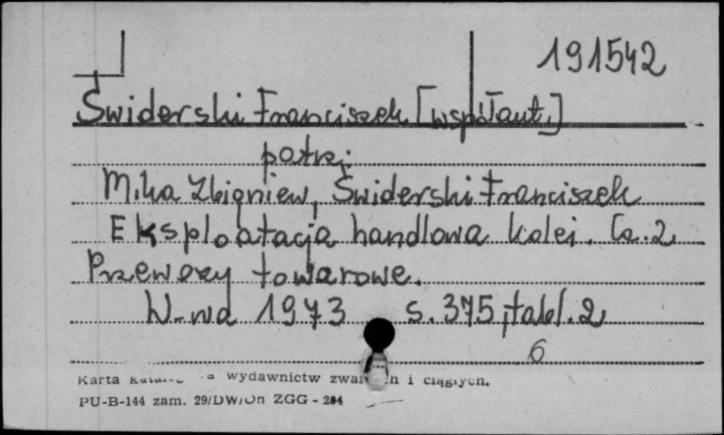 191542
Świderski Franciszek [współaut.]
patrz:
Mika Zbigniew, Świderski Franciszek
Eksploatacja handlowa kolei. Cz. 2
Przewozy towarowe.
W-wa 1973 s. 375, tabl. 2
6
Karta wydawnictw i ciągłych.
PU-B-144 zam. 29/DW/On ZGG - 284